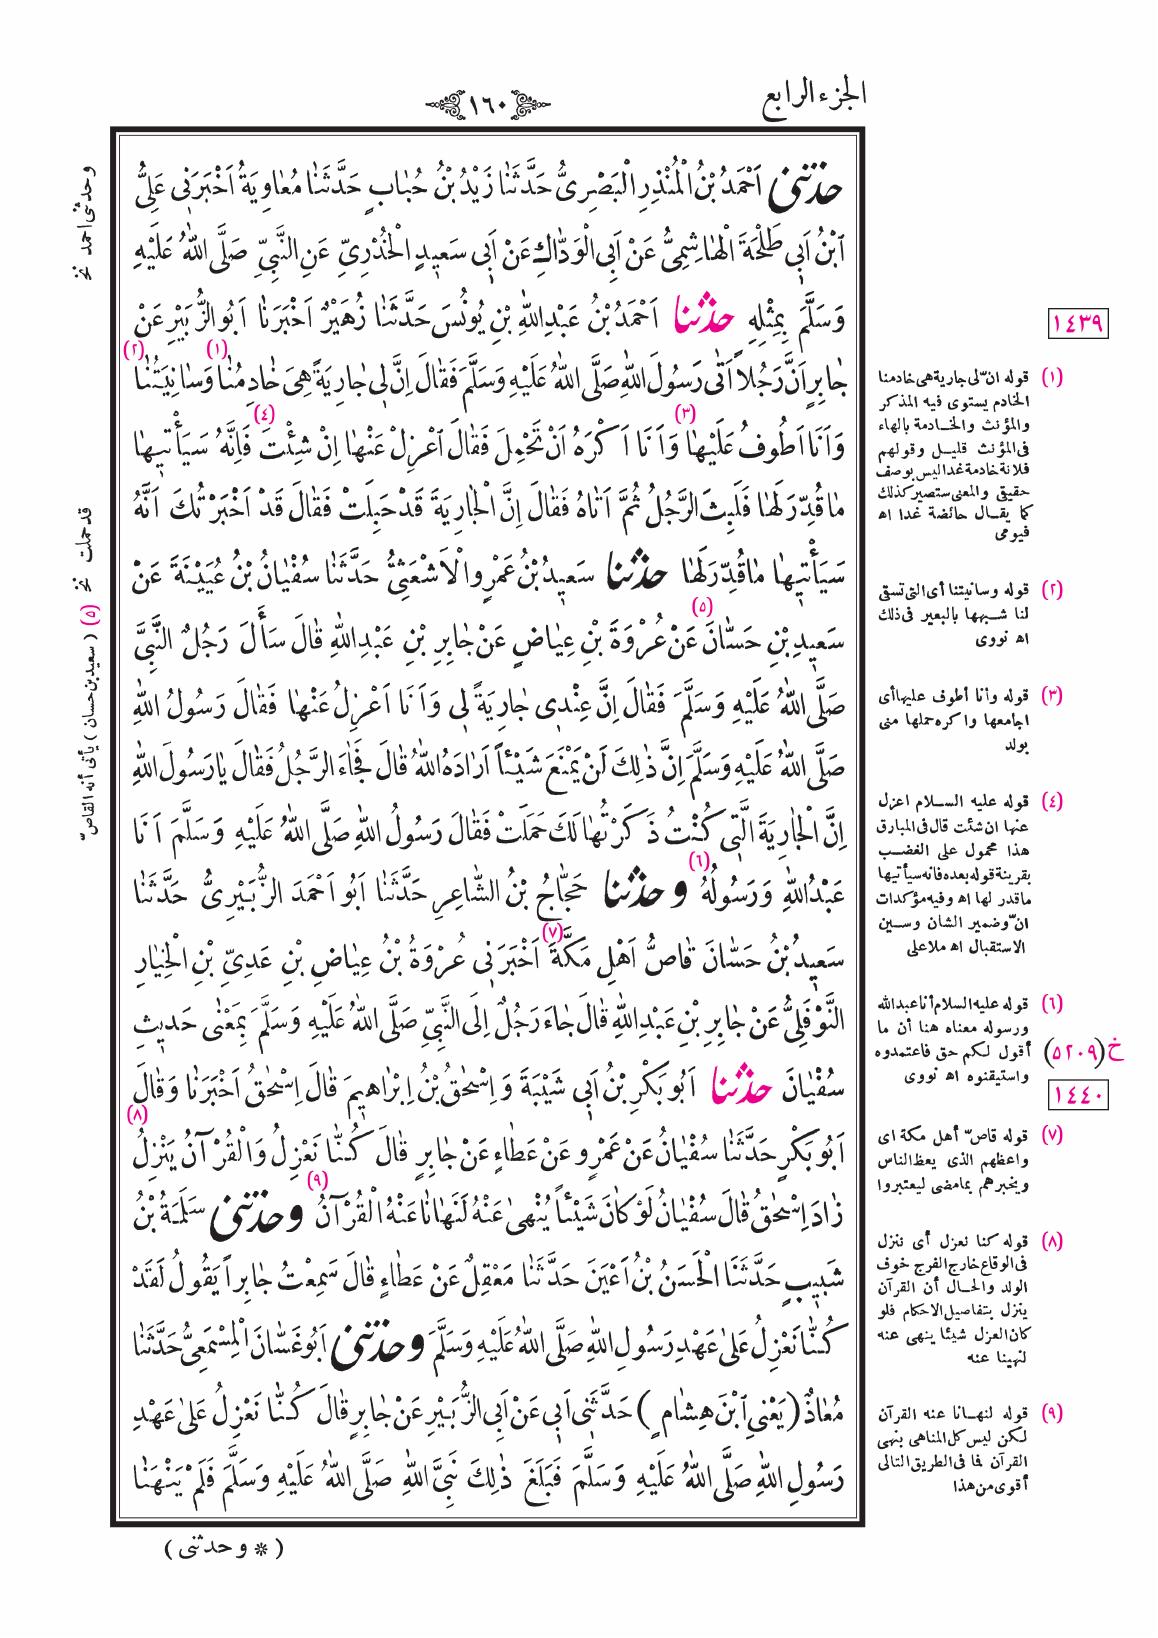 الجزء الرابع
١٦٠
حَدَّثَنِي اَحْمَدُ بْنُ الْمُنْذِرِ الْبَصْرِىُّ حَدَّثَنَا زَيْدُ بْنُ حُبَابٍ حَدَّثَنَا مُعَاوِيَةُ اَخْبَرَنِى عَلِىُّ
ابْنُ اَبِي طَلْحَةَ الْهَاشِمِىُّ عَنْ اَبِى الْوَدَّاكِ عَنْ اَبِى سَعِيدٍ الْخُدْرِىِّ عَنِ النَّبِىِّ صَلَّى اللهُ عَلَيْهِ
وَسَلَّمَ بِمِثْلِهِ حَدَّثَنَا اَحْمَدُ بْنُ عَبْدِاللهِ بْنِ يُونُسَ حَدَّثَنَا زُهَيْرٌ اَخْبَرَنَا اَبُو الزُّبَيْرِ عَنْ
جَابِرٍ اَنَّ رَجُلاً اَتٰى رَسُولَ اللهِ صَلَّى اللهُ عَلَيْهِ وَسَلَّمَ فَقَالَ اِنَّ لِى جَارِيَةً هِىَ خَادِمُنَا (١) وَسَانِيَتُنَا (٢)
وَاَنَا اَطُوفُ عَلَيْهَا (٣) وَاَنَا اَكْرَهُ اَنْ تَحْمِلَ فَقَالَ اعْزِلْ عَنْهَا اِنْ شِئْتَ (٤) فَاِنَّهُ سَيَأْتِيهَا
مَا قُدِّرَ لَهَا فَلَبِثَ الرَّجُلُ ثُمَّ اَتَاهُ فَقَالَ اِنَّ الْجَارِيَةَ قَدْ حَبِلَتْ فَقَالَ قَدْ اَخْبَرْتُكَ اَنَّهُ
سَيَأْتِيهَا مَا قُدِّرَ لَهَا حَدَّثَنَا سَعِيدُ بْنُ عَمْرٍو الْاَشْعَثِىُّ حَدَّثَنَا سُفْيَانُ بْنُ عُيَيْنَةَ عَنْ
سَعِيدِ بْنِ حَسَّانَ (٥) عَنْ عُرْوَةَ بْنِ عِيَاضٍ عَنْ جَابِرِ بْنِ عَبْدِاللهِ قَالَ سَأَلَ رَجُلٌ النَّبِىَّ
صَلَّى اللهُ عَلَيْهِ وَسَلَّمَ فَقَالَ اِنَّ عِنْدِى جَارِيَةً لِى وَاَنَا اَعْزِلُ عَنْهَا فَقَالَ رَسُولُ اللهِ
صَلَّى اللهُ عَلَيْهِ وَسَلَّمَ اِنَّ ذٰلِكَ لَنْ يَمْنَعَ شَيْئاً اَرَادَهُ اللهُ قَالَ فَجَاءَ الرَّجُلُ فَقَالَ يَا رَسُولَ اللهِ
اِنَّ الْجَارِيَةَ الَّتِى كُنْتُ ذَكَرْتُهَا لَكَ حَمَلَتْ فَقَالَ رَسُولُ اللهِ صَلَّى اللهُ عَلَيْهِ وَسَلَّمَ اَنَا
عَبْدُاللهِ وَرَسُولُهُ (٦) وحَدَّثَنَا حَجَّاجُ بْنُ الشَّاعِرِ حَدَّثَنَا اَبُو اَحْمَدَ الزُّبَيْرِىُّ حَدَّثَنَا
سَعِيدُ بْنُ حَسَّانَ قَاصُّ اَهْلِ مَكَّةَ (٧) اَخْبَرَنِى عُرْوَةُ بْنُ عِيَاضِ بْنِ عَدِىِّ بْنِ الْخِيَارِ
النَّوْفَلِىُّ عَنْ جَابِرِ بْنِ عَبْدِاللهِ قَالَ جَاءَ رَجُلٌ اِلَى النَّبِىِّ صَلَّى اللهُ عَلَيْهِ وَسَلَّمَ بِمَعْنٰى حَدِيثِ
سُفْيَانَ حَدَّثَنَا اَبُو بَكْرِ بْنُ اَبِى شَيْبَةَ وَ اِسْحٰقُ بْنُ اِبْرَاهِيمَ قَالَ اِسْحٰقُ اَخْبَرَنَا وَقَالَ
اَبُو بَكْرٍ حَدَّثَنَا سُفْيَانُ عَنْ عَمْرٍو عَنْ عَطَاءٍ عَنْ جَابِرٍ قَالَ كُنَّا نَعْزِلُ وَالْقُرْآنُ يَنْزِلُ (٨)
زَادَ اِسْحٰقُ قَالَ سُفْيَانُ لَوْ كَانَ شَيْئاً يُنْهٰى عَنْهُ لَنَهَانَا عَنْهُ الْقُرْآنُ (٩) وحَدَّثَنِى سَلَمَةُ بْنُ
شَبِيبٍ حَدَّثَنَا الْحَسَنُ بْنُ اَعْيَنَ حَدَّثَنَا مَعْقِلٌ عَنْ عَطَاءٍ قَالَ سَمِعْتُ جَابِراً يَقُولُ لَقَدْ
كُنَّا نَعْزِلُ عَلٰى عَهْدِ رَسُولِ اللهِ صَلَّى اللهُ عَلَيْهِ وَسَلَّمَ وحَدَّثَنِى اَبُو غَسَّانَ الْمِسْمَعِىُّ حَدَّثَنَا
مُعَاذٌ (يَعْنِى ابْنَ هِشَامٍ) حَدَّثَنِى اَبِى عَنْ اَبِى الزُّبَيْرِ عَنْ جَابِرٍ قَالَ كُنَّا نَعْزِلُ عَلٰى عَهْدِ
رَسُولِ اللهِ صَلَّى اللهُ عَلَيْهِ وَسَلَّمَ فَبَلَغَ ذٰلِكَ نَبِىَّ اللهِ صَلَّى اللهُ عَلَيْهِ وَسَلَّمَ فَلَمْ يَنْهَنَا
( * وحدثنى )
١٤٣٩
(١) قوله انّ لى جارية هى خادمنا
الخادم يستوى فيه المذكر
والمؤنث والخادمة بالهاء
فى المؤنث قليل وقولهم
فلانة خادمة غدا ليس بوصف
حقيقى والمعنى ستصير كذلك
كما يقال حائضة غدا اه
فيومى
(٢) قوله وسانيتنا أى التى تسقى
لنا شبهها بالبعير فى ذلك
اه نووى
(٣) قوله وأنا أطوف عليها أى
اجامعها واكره حملها منى
بولد
(٤) قوله عليه السلام اعزل
عنها ان شئت قال فى المبارق
هذا محمول على الغضب
بقرينة قوله بعده فانه سيأتيها
ماقدر لها اه وفيه مؤكدات
انّ وضمير الشان وسين
الاستقبال اه ملاعلى
(٦) قوله عليه السلام أنا عبدالله
ورسوله معناه هنا أن ما
أقول لكم حق فاعتمدوه
واستيقنوه اه نووى
خ (٥٢٠٩)
١٤٤٠
(٧) قوله قاصّ أهل مكة اى
واعظهم الذى يعظ الناس
ويخبرهم بمامضى ليعتبروا
(٨) قوله كنا نعزل أى ننزل
فى الوقاع خارج الفرج خوف
الولد والحال أن القرآن
ينزل بتفاصيل الاحكام فلو
كان العزل شيئا ينهى عنه
لنهينا عنه
(٩) قوله لنهانا عنه القرآن
لكن ليس كل المناهى بنهى
القرآن فما فى الطريق التالى
أقوى من هذا
وحدثنى احمد نخ
قد حملت نخ
(٥) (سعيد بن حسان) يأتى أنه القاصّ